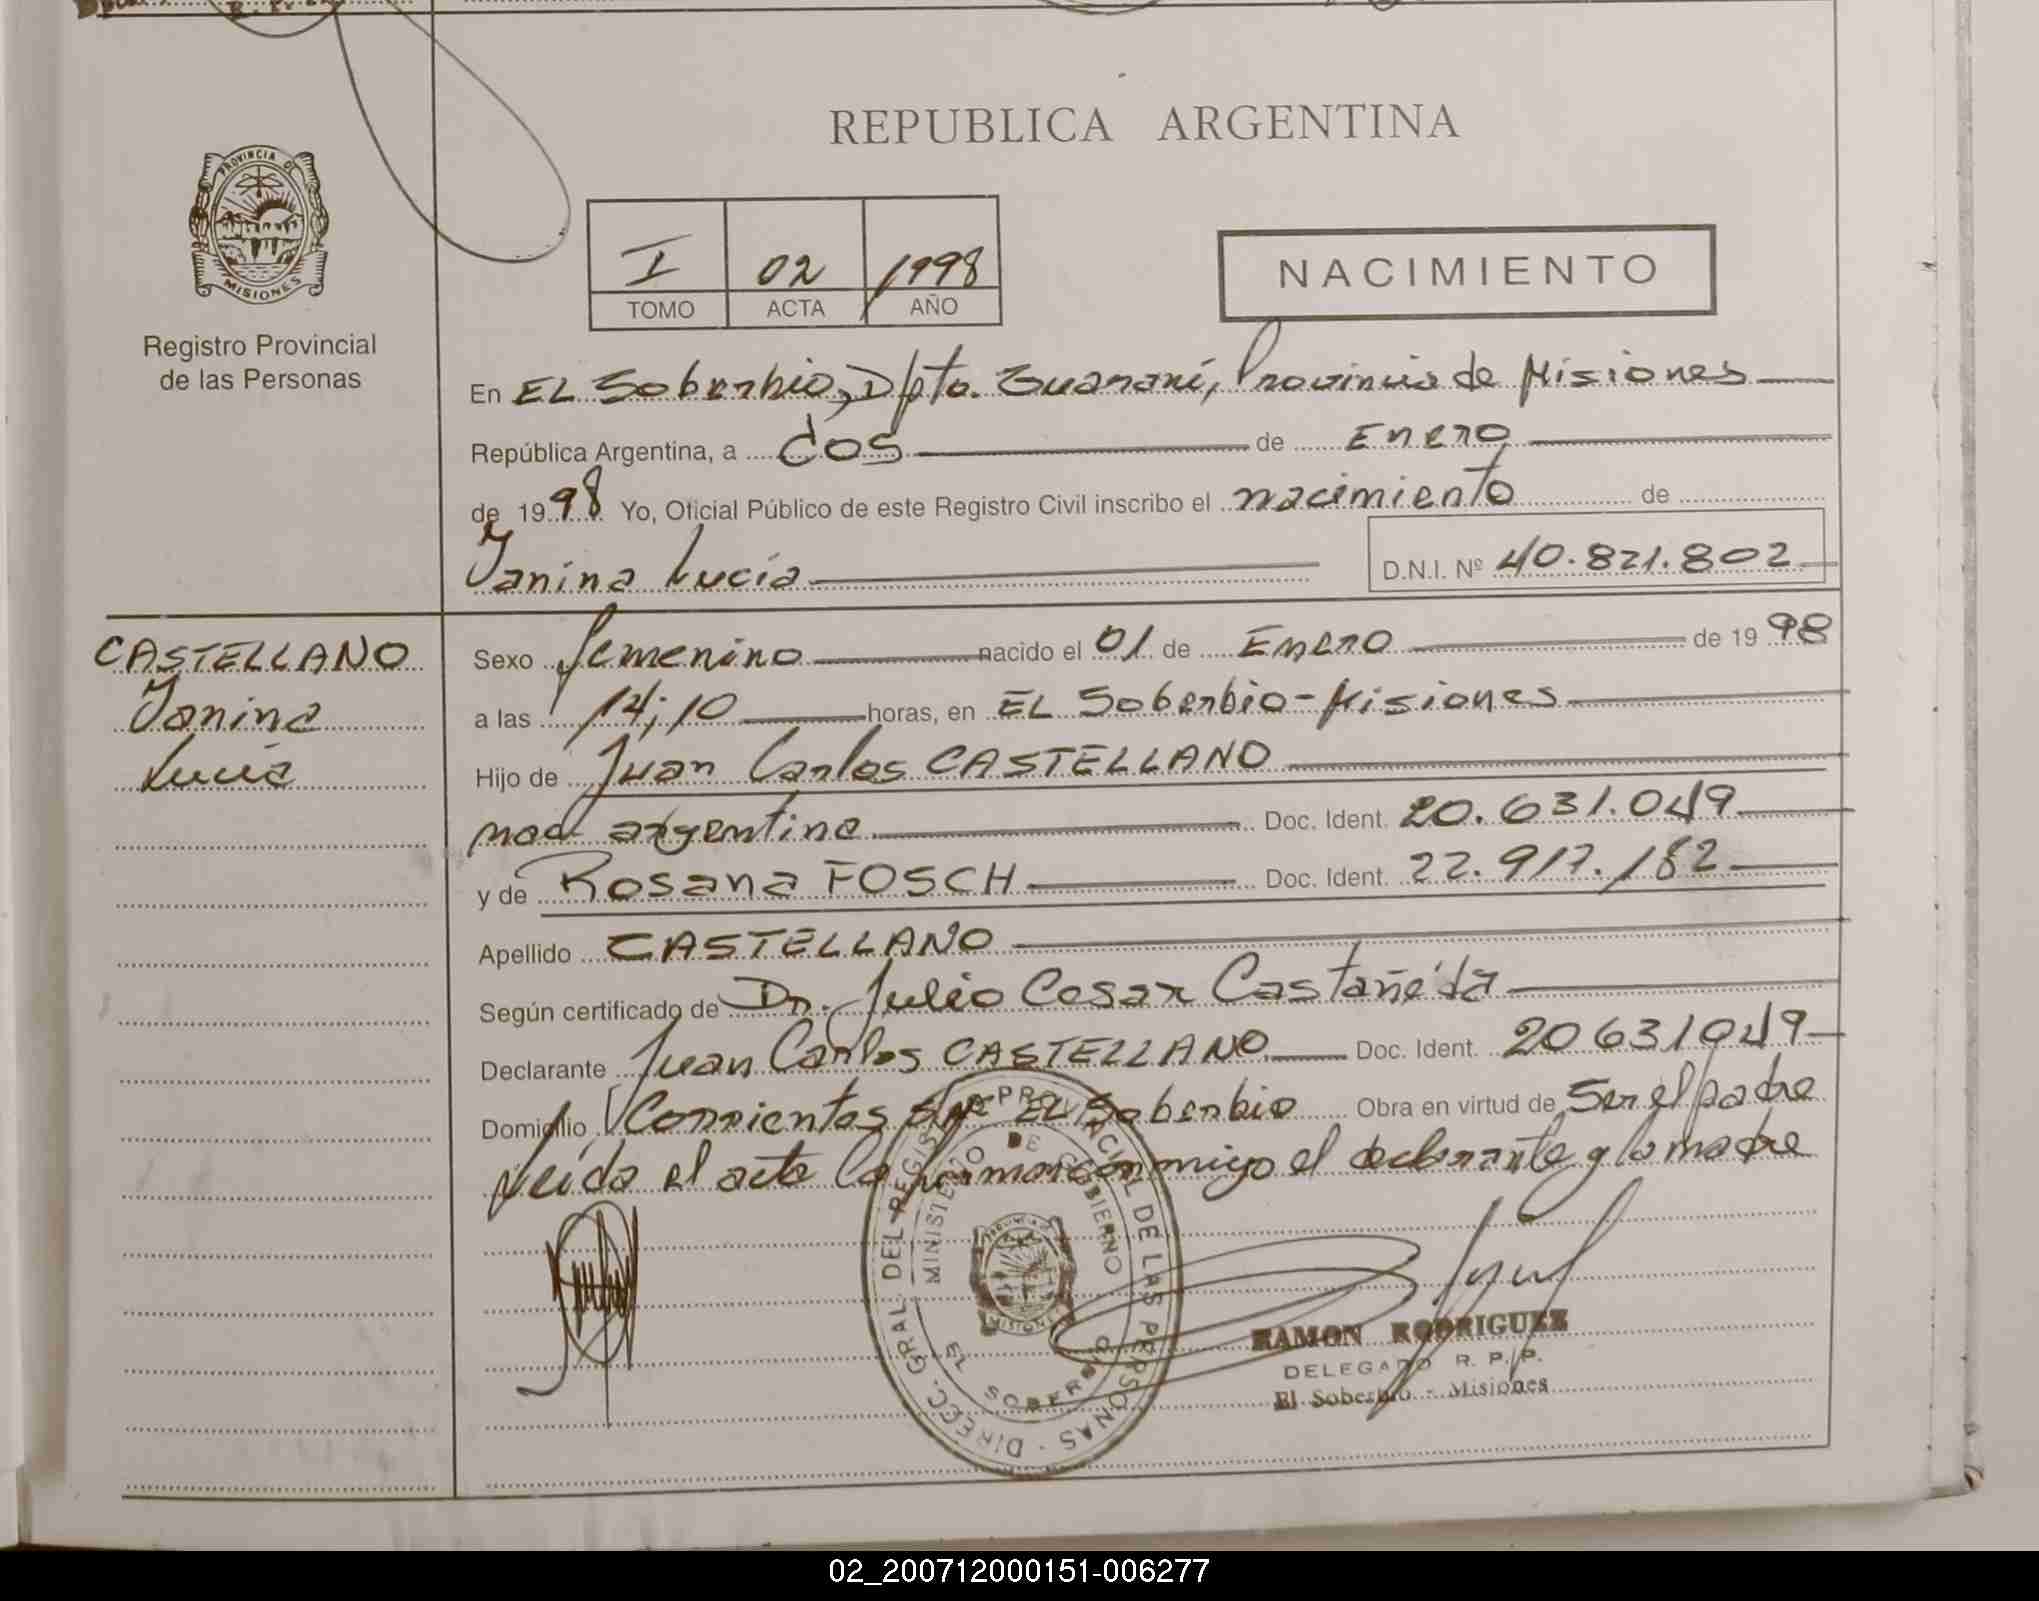 REPUBLICA ARGENTINA
PROVINCIA DE
MISIONES
Registro Provincial
de las Personas
I 02 1998
TOMO ACTA AÑO
NACIMIENTO
En EL Soberbio, Dpto. Guaraní, Provincia de Misiones
República Argentina, a dos de Enero
de 1998 Yo, Oficial Público de este Registro Civil inscribo el nacimiento de
Yanina Lucía D.N.I. Nº 40.821.802
CASTELLANO
Yanina
Lucía
Sexo femenino nacido el 01 de Enero de 1998
a las 14;10 horas, en EL Soberbio - Misiones
Hijo de Juan Carlos CASTELLANO
nac. argentina Doc. Ident. 20.631.049
y de Rosana FOSCH Doc. Ident. 22.917.182
Apellido CASTELLANO
Según certificado de Dr. Julio Cesar Castañeda
Declarante Juan Carlos CASTELLANO Doc. Ident. 20631049
Domicilio Corrientes s/nº EL Soberbio Obra en virtud de Ser el padre
Leída el acta la firman conmigo el declarante y la madre
DIREC. GRAL. DEL REGISTRO PROVINCIAL DE LAS PERSONAS
MINISTERIO DE GOBIERNO
EL SOBERBIO
RAMON RODRIGUEZ
DELEGADO R. P. P.
El Soberbio - Misiones
02_200712000151-006277